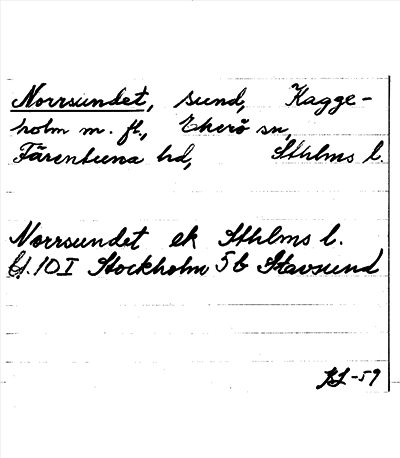 Norrsundet, sund, Kagge-
holm m. fl., Ekerö sn,
Färentuna hd, Sthlms l.
Norrsundet ek Sthlms l.
Bl. 10 I Stockholm 5 b Stavsund
-59